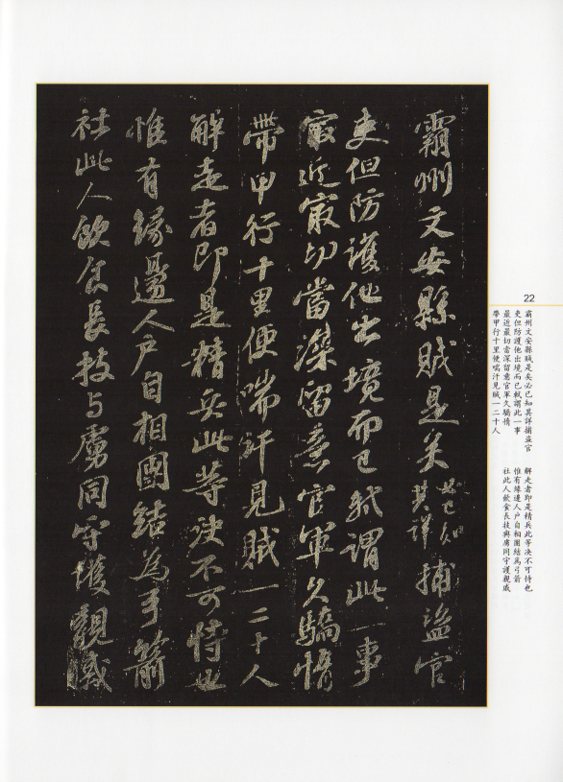 22
霸州文安縣賊是矣必已知其詳捕盜官
吏但防護他出境而已軾謂此一事
最近最切當深留意官軍久驕惰
帶甲行十里便喘汗見賊一二十人
解走者即是精兵此等決不可恃也
惟有緣邊人戶自相團結為弓箭
社此人飲食長技與虜同守護親戚
霸州文安縣賊是矣必已知其詳捕盜官
吏但防護他出境而已軾謂此一事
最近最切當深留意官軍久驕惰
帶甲行十里便喘汗見賊一二十人
解走者即是精兵此等決不可恃也
惟有緣邊人戶自相團結為弓箭
社此人飲食長技与虜同守護親戚